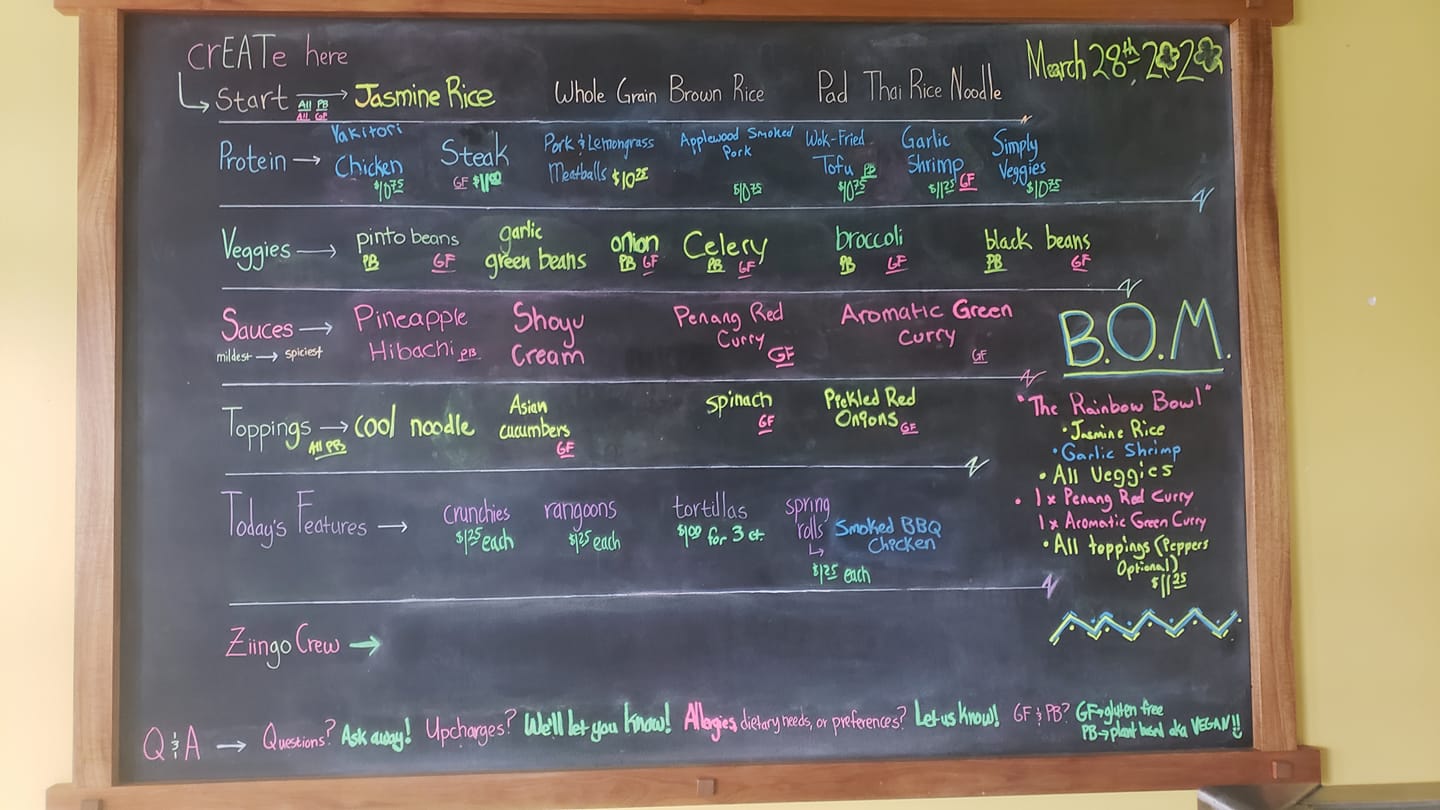 crEATe here
March 28th, 2020
Start → Jasmine Rice Whole Grain Brown Rice Pad Thai Rice Noodle
All PB
All GF
Protein → Yakitori Chicken $10.75 Steak GF $11.00 Pork & Lemongrass Meatballs $10.25 Applewood Smoked Pork $10.75 Wok-Fried Tofu PB $10.75 Garlic Shrimp $11.25 GF Simply Veggies $10.75
Veggies → pinto beans PB GF garlic green beans onion PB GF Celery PB GF broccoli PB GF black beans PB GF
Sauces → Pineapple Hibachi PB Shoyu Cream Penang Red Curry GF Aromatic Green Curry GF
mildest → spiciest
Toppings → cool noodle Asian cucumbers GF spinach GF Pickled Red Onions GF
All PB
Today's Features → crunchies $1.25 each rangoons $1.25 each tortillas $1.00 for 3 ct. spring rolls ↳ Smoked BBQ Chicken $1.25 each
Ziingo Crew →
B.O.M.
"The Rainbow Bowl"
• Jasmine Rice
• Garlic Shrimp
• All Veggies
• 1x Penang Red Curry
1x Aromatic Green Curry
• All toppings (Peppers
Optional)
$11.25
Q & A → Questions? Ask away! Upcharges? We'll let you know! Allegies, dietary needs, or preferences? Let us know! GF & PB? GF→gluten free
PB→plant based aka VEGAN!!